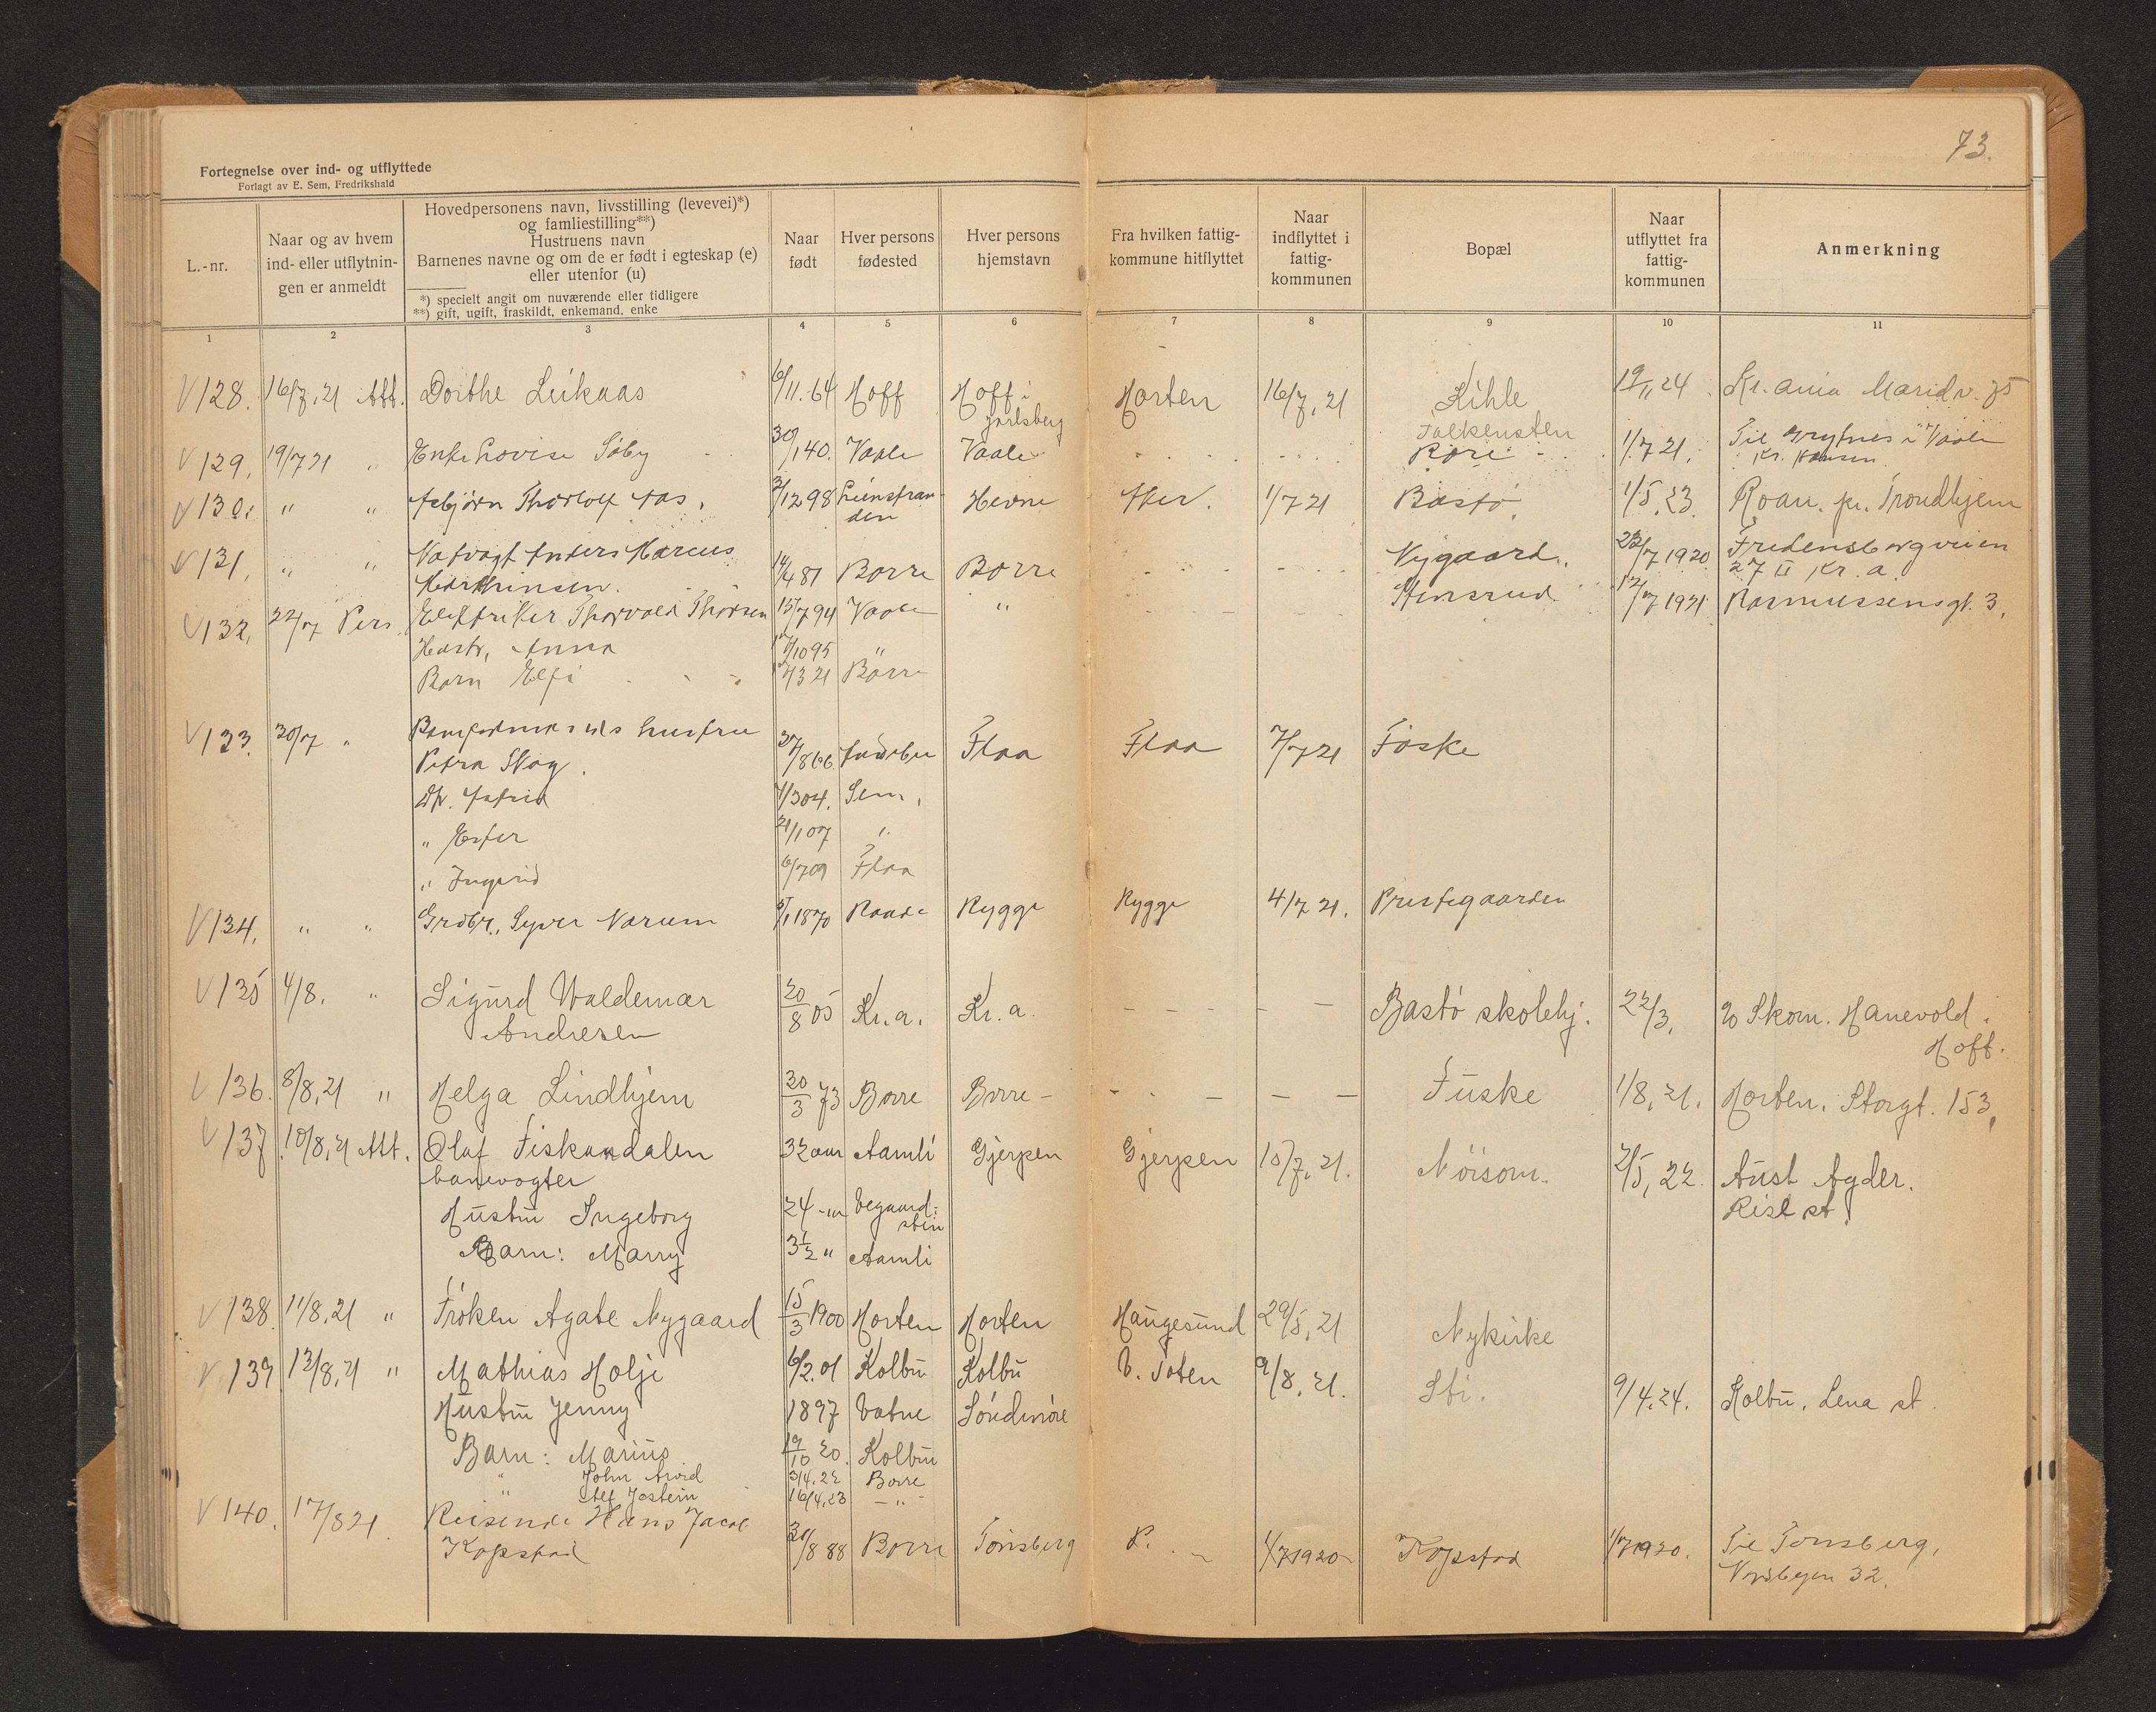 73.
Fortegnelse over ind- og utflyttede
Forlagt av E. Sem, Fredrikshald
L.-nr.
Naar og av hvem
ind- eller utflytnin-
gen er anmeldt
Hovedpersonens navn, livsstilling (levevei)*)
og famliestilling**)
Hustruens navn
Barnenes navne og om de er født i egteskap (e)
eller utenfor (u)
*) specielt angit om nuværende eller tidligere
**) gift, ugift, fraskildt, enkemand, enke
Naar
født
Hver persons
fødested
Hver persons
hjemstavn
Fra hvilken fattig-
kommune hitflyttet
Naar
indflyttet i
fattig-
kommunen
Bopæl
Naar
utflyttet fra
fattig-
kommunen
Anmerkning
1 2 3 4 5 6 7 8 9 10 11
V 128. 16/7.21 Att. Dorthe Leikaas 6/11.64 Hoff Hoff i Horten 16/7.21 Kihle 19/11 24 Kr.ania Maridv. 75
Jarlsberg
Falkensten
V 129. 19/7 21 " Enke Lovise Søby 30/1 40. Vaale Vaale Røre 1/7 21. Til i Vaale
Kr. Hansen
V 130. " " Asbjørn Thorlof Aas. 12 98 Hevne Aker. 1/7 21 Bastø. 1/5.23. Roan. pr. Trondhjem
V 131. " " Anders Marcus 14/4 81 Borre Borre Nygaard. 7 1920 Fredensborgveien
27 II Kr.a.
V 132. 22/7 Pers. Elektriker Thorvald Thorsen 15/7 94 Vaale " Stensrud 7 1921 Rasmussensgt. 3.
Hustr. Anna 10 95 "
Barn Elfi 3 21 Borre
V 133. 30/7 " hustru
Petra Skog. 27/8 66 Flaa Flaa 7/7 21 Føske
Dtr. Astrid 3 04. Sem.
" Ester 21/1 07 "
" Ingerid 6/7 09 Flaa
V 134. " " Grdbr. Syver Varum 5/1 1870 Raade Rygge Rygge 4/7 21. Prestegaarden
V 135 4/8. " Sigurd Waldemar 20/8 05 Kr.a. Kr.a. - - - - Bastø skolehj. 22/3. Skom. Hanevold i
Andresen Hoff.
V 136. 8/8.21 " Helga Lindhjem 30/3 73 Borre Borre - - - - - - Fuske 1/8.21. Horten. Storgt. 153.
V 137. 10/8.21 Att. Olaf Fiskandalen 32 aar Aamli Gjerpen Gjerpen 15/7.21. Nøisom. 2/5.22. Aust Agder.
banevogter Risl st.
Hustru Ingeborg 24 -"- Vegaard-
stin
Barn: Marry 3½ " Aamli
V 138. 11/8.21 " Frøken Agate Nygaard 15/3 1900 Horten Horten Haugesund 29/5.21 Nykirke
V 139. 13/8.21 " Mathias Holje 6/2.01 Kolbu Kolbu V. Toten 9/8.21. Sti. 9/4.24. Kolbu, Lena st.
Hustru Jenny 1897 Vatne Søndmøre
Barn: Marius 19/10 20. Kolbu
" John Arvid 3/4.22 Borre
" Alf Jostein 16/4.23 -"-
V 140. 17/8 21. Reisende Hans Jacob
Kopstad 30/8 88 Borre Tønsberg 1/7 1920 Kopstad 1/7 1920. Til Tønsberg,
Nordbyen 32.